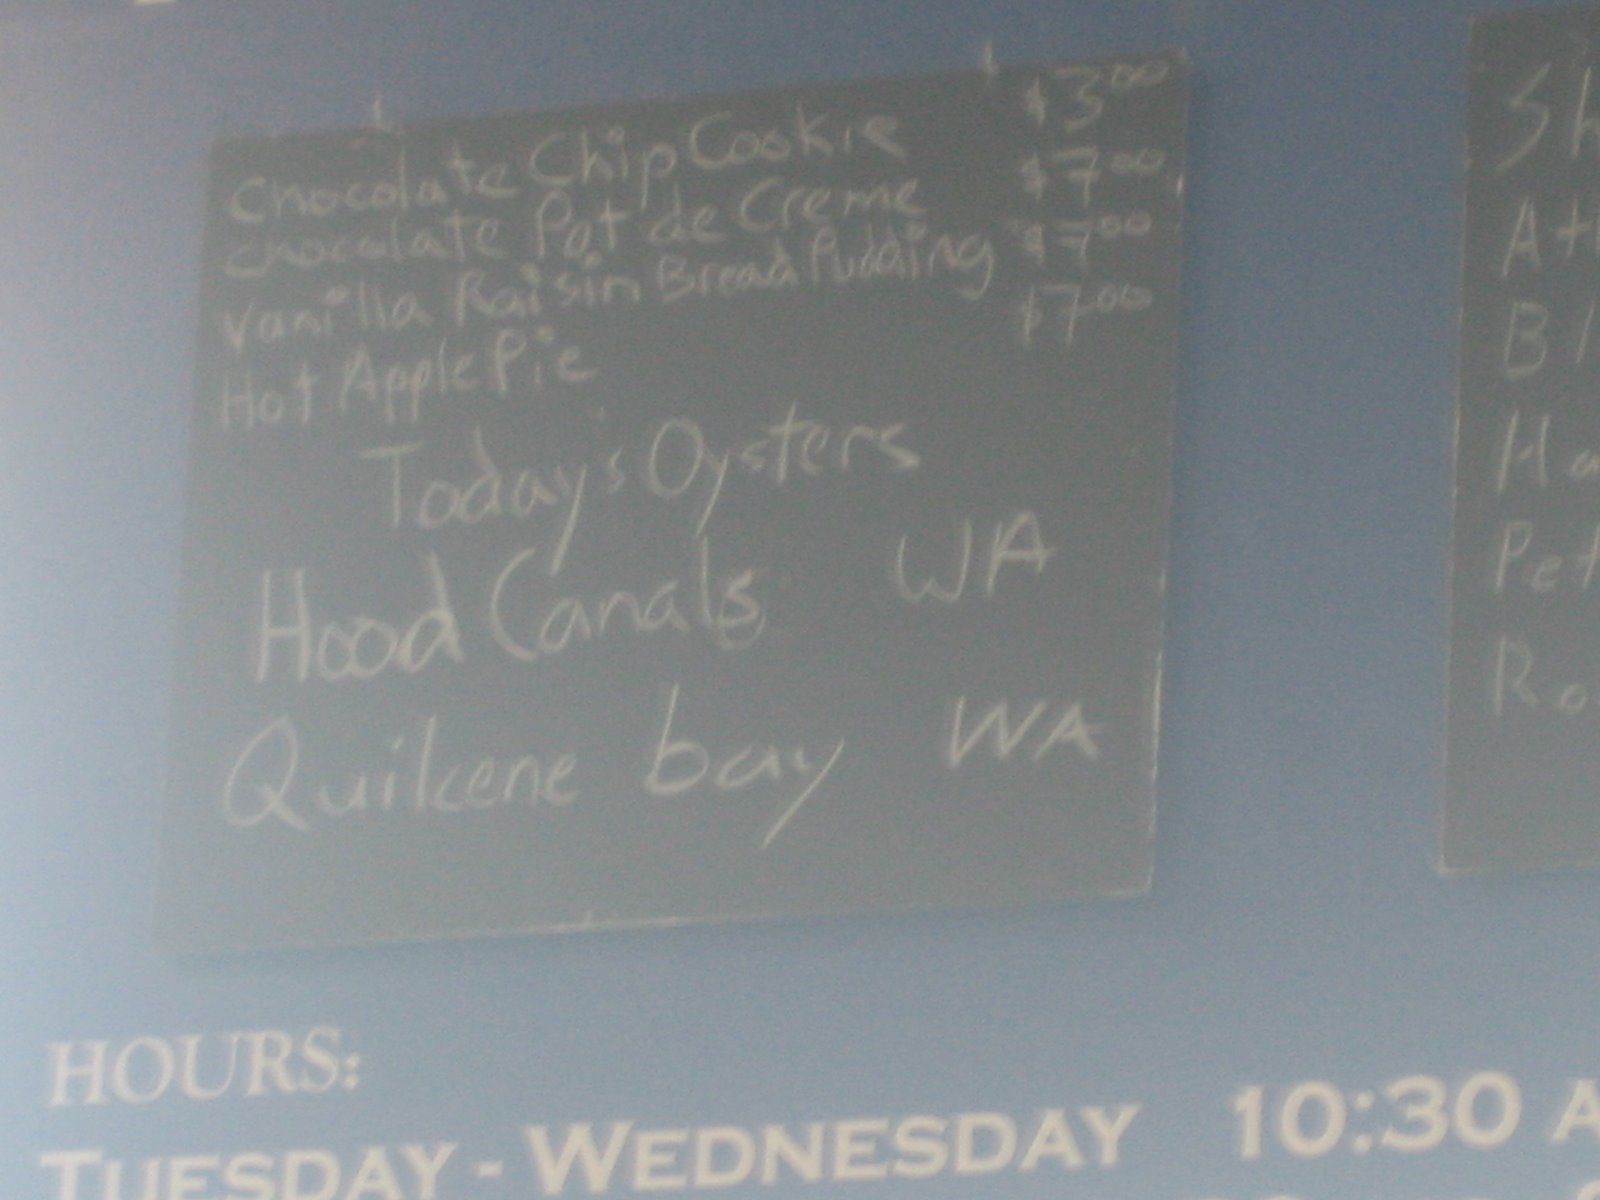 Chocolate Chip Cookie $3.00
Chocolate Pot de Creme $7.00
Vanilla Raisin Bread Pudding $7.00
Hot Apple Pie $7.00
Today's Oysters
Hood Canals WA
Quilcene bay WA
Sh
At
Bl
Ha
Pet
Ro
HOURS:
TUESDAY - WEDNESDAY 10:30 A